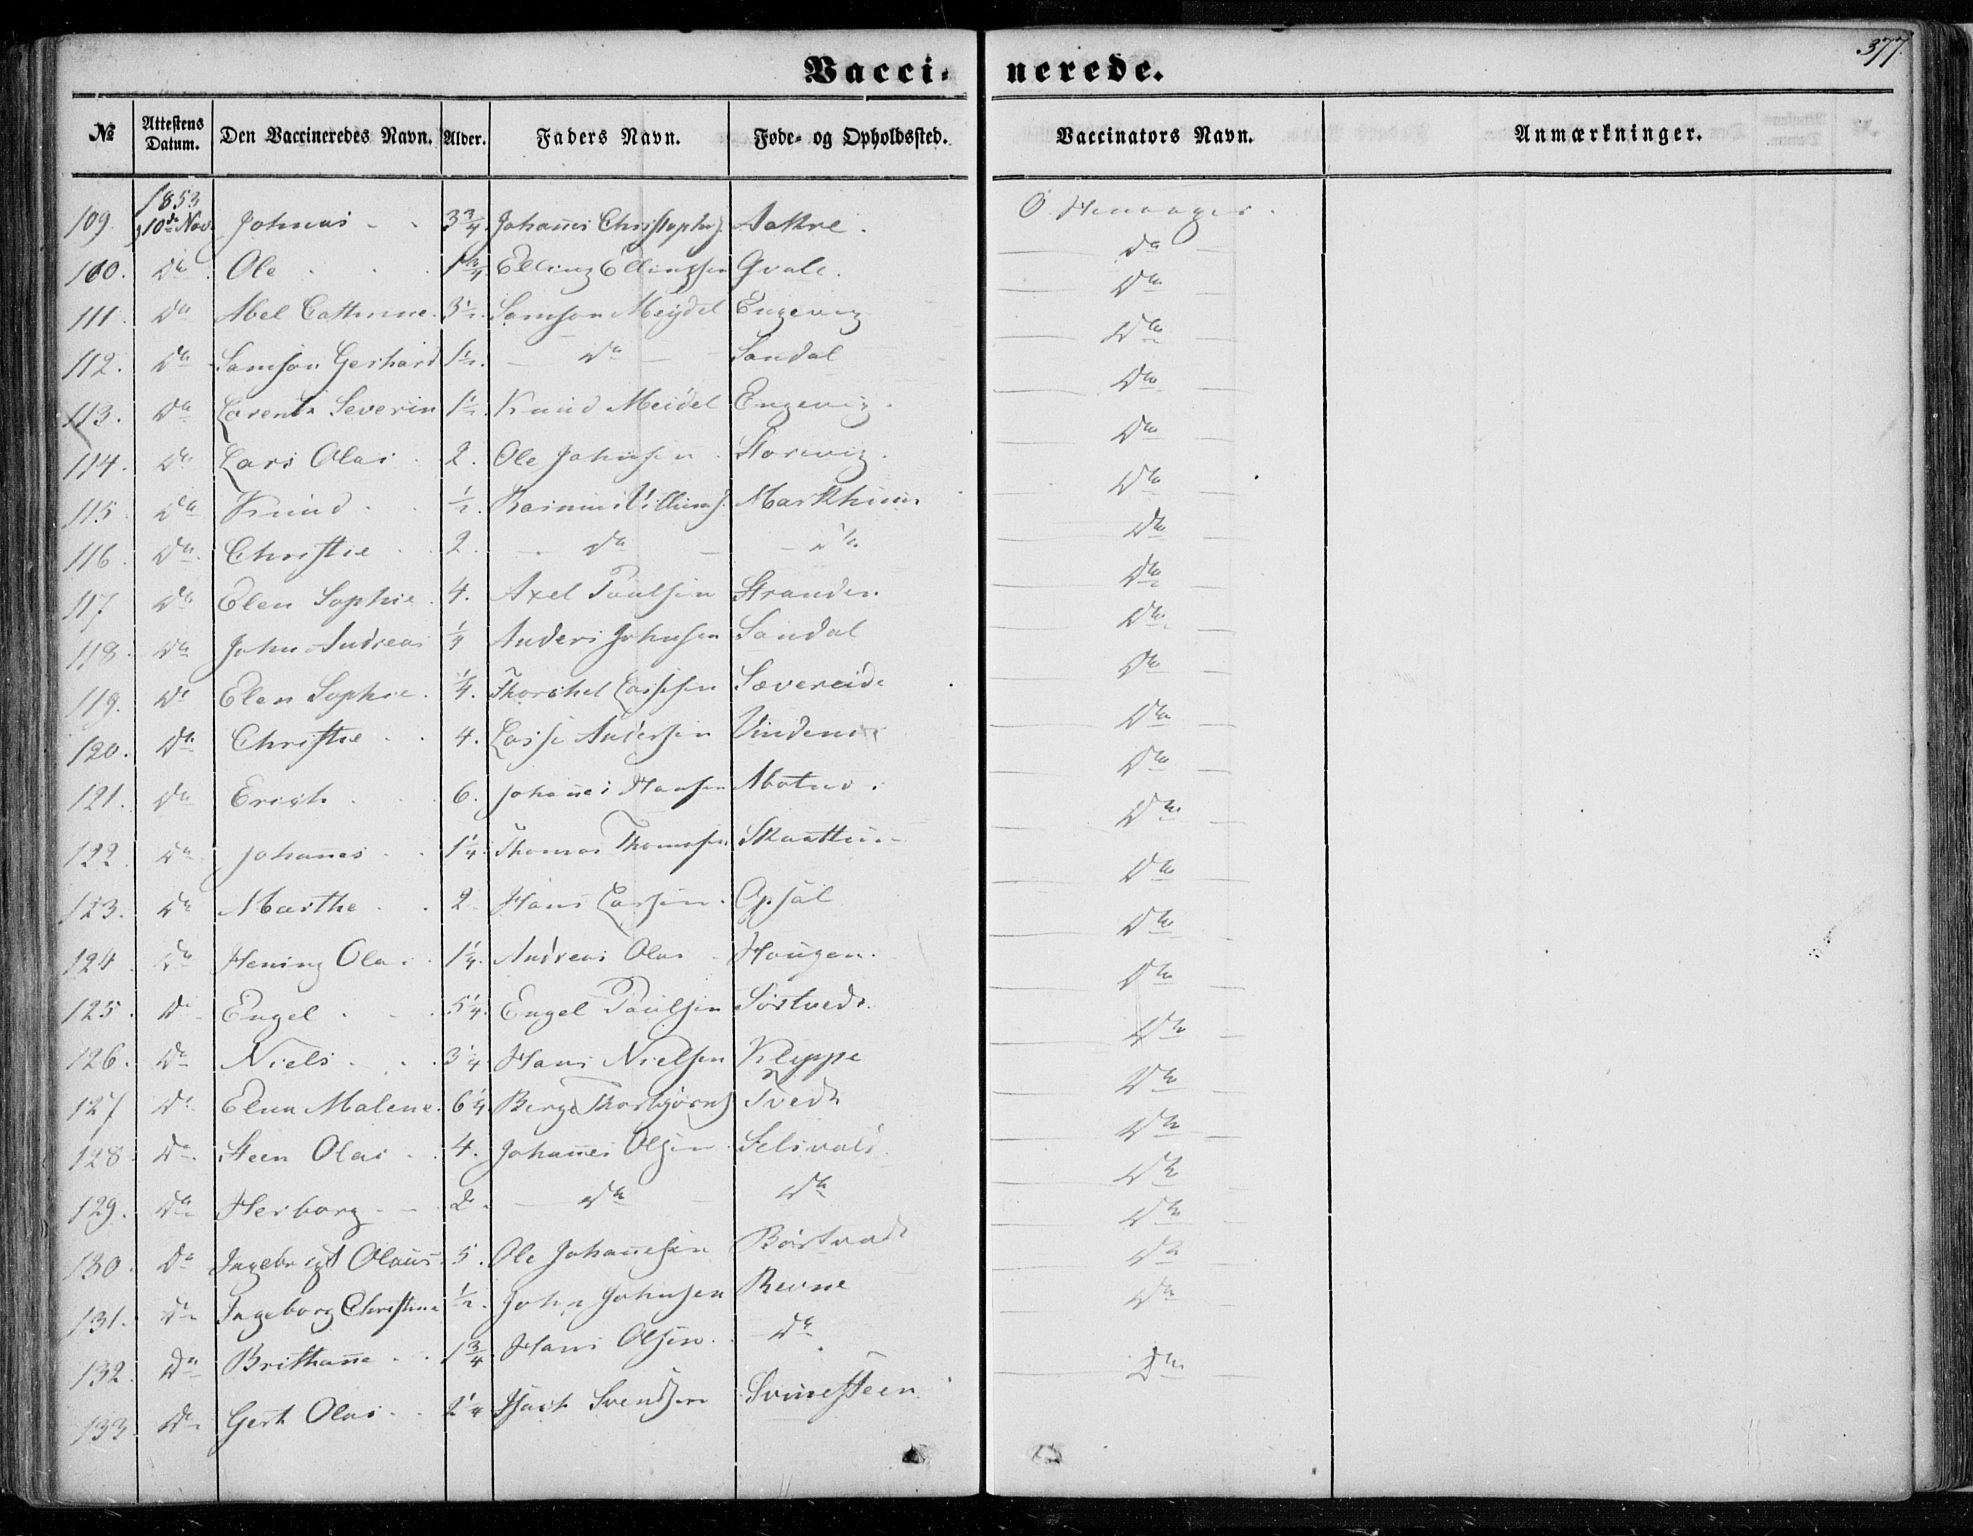 377.
Vacci- nerede.
№ Attestens Datum. Den Vaccineredes Navn. Alder. Faders Navn. Føde- og Opholdssted. Vaccinators Navn. Anmærkninger.
1853
109. 10de Nov Johnas 3 3/4 Johannes Christophs. Aakre.
110. Do Ole 1 3/4 Elling Ellingssen Qvale. Do
111. Do Abel Cathrine. 3 1/2. Samson Meydel Engevig Do
112. Do Samson Gerhard 1 1/2. Do Sandal Do
113. Do Lorents Severin 1 1/2. Knud Meidel Engevig. Do
114. Do Lars Olai 2. Ole Johnsen Storevig. Do
115. Do Knud 1/2. Rasmus Villums. Markhuus Do
116. Do Christie 2. Do Do Do
117 Do Elen Sophie. 4. Axel Paulsen Stranden Do
118. Do John Andreas 1/4 Anders Johnsen Sandal Do
119. Do Elen Sophie. 1/4. Thorchel Lassesen Sævereide Do
120. Do Christie 4. Lasse Andersen Vindenes Do
121. Do Erich 6. Johannes Hansen Do
122. Do Johannes 1 1/4. Thomas Thomasen Skaattun Do
123. Do Marthe 2. Hans Larsen. Opsal Do
124. Do Hening Olai 1 1/4. Andreas Olai Haugen. Do
125. Do Engel 5 1/4. Engel Paulsen Sørtvedt. Do
126. Do Niels 3 1/4 Hans Nielsen Kleppe Do
127 Do Elen Malene. 6 1/4 Berge Thorbjørns Tvedt Do
128. Do Steen Olai 4. Johannes Olsen Do
129. Do Herborg 2. Do Do Do
130. Do Ingebrigt Olaus 5. Ole Johannesen Børtvedt Do
131. Do Ingeborg Christina 1/2. John Johnsen Revne Do
132. Do Brithanne 1 3/4 Hans Olsen. Do Do
133. Do Gert Olai 2 1/4 Isach Svendsen Svinesteen Do